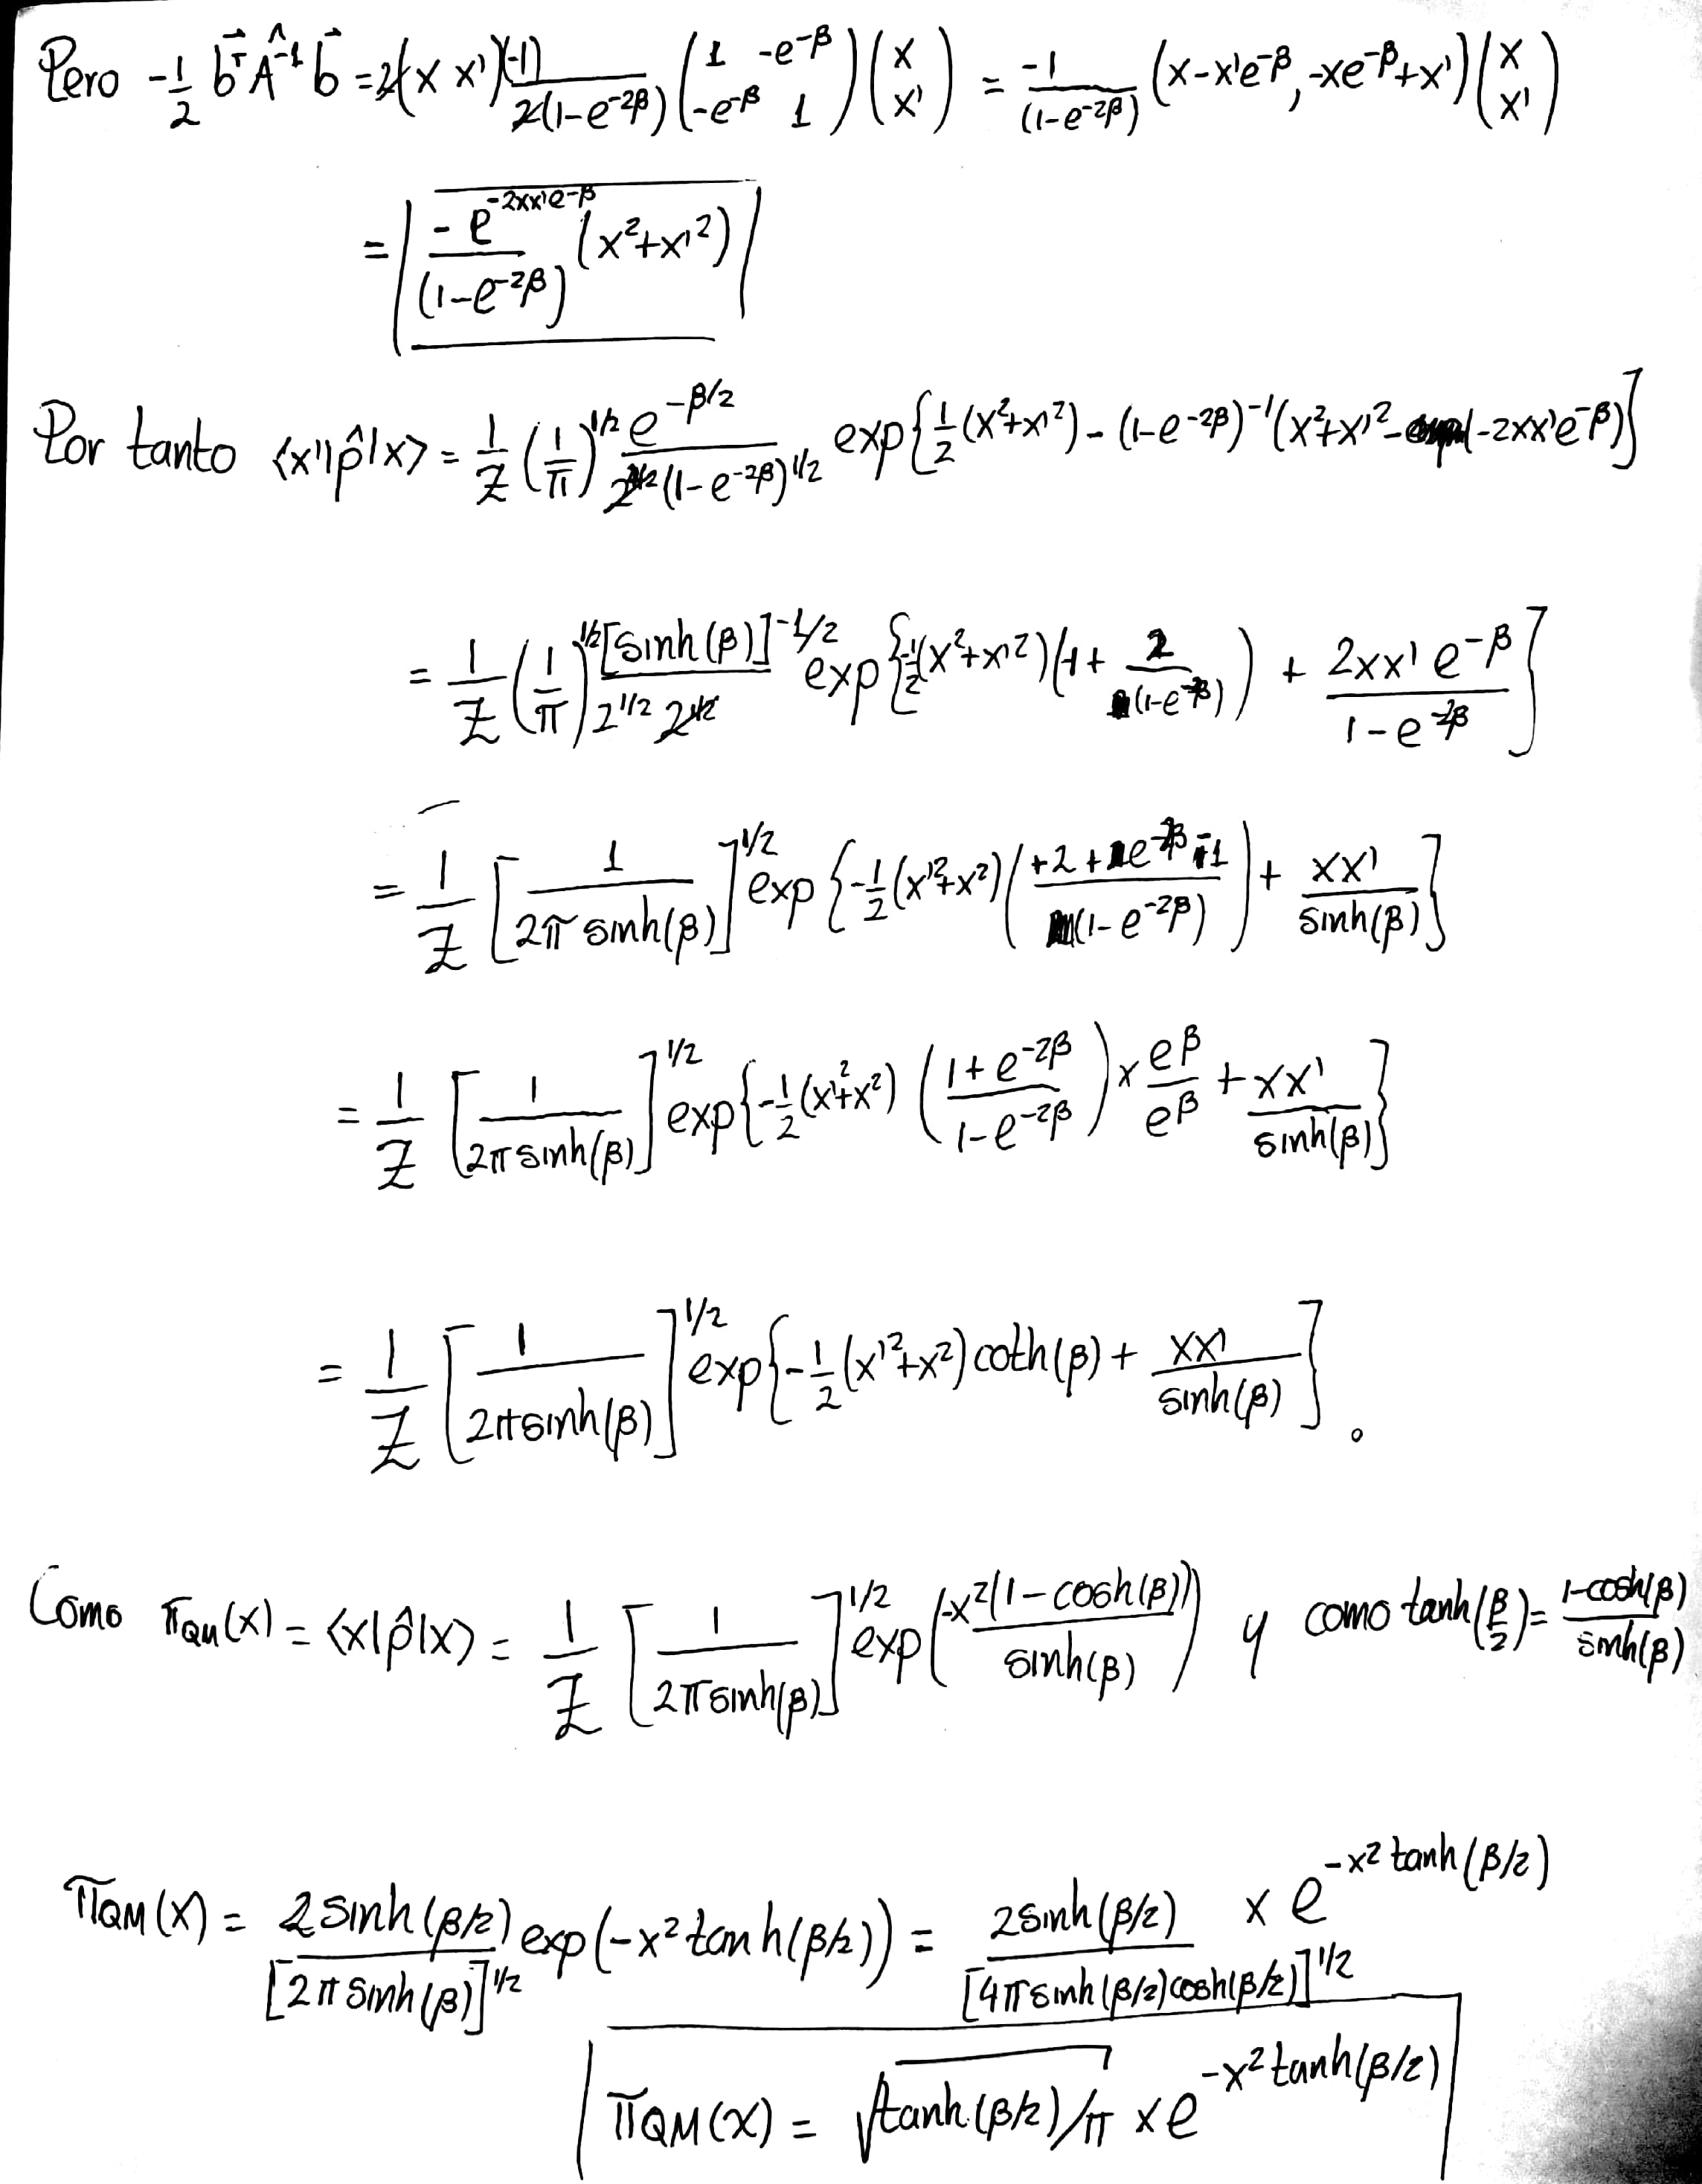 Pero -1/2 b⃗ᵀ Â⁻¹ b⃗ = 2(x x') (-1)/(2(1-e^{-2β})) (1 -e^{-β}; -e^{-β} 1)(x; x') = -1/(1-e^{-2β}) (x-x'e^{-β}, -xe^{-β}+x')(x; x')
= -e^{-2xx'e^{-β}}/(1-e^{-2β}) (x²+x'²)
Por tanto <x'|ρ̂|x> = 1/Z (1/π)^{1/2} e^{-β/2}/(1-e^{-2β})^{1/2} exp{1/2 (x²+x'²) - (1-e^{-2β})^{-1}(x²+x'² -2xx'e^{-β})}
= 1/Z (1/π)^{1/2} [sinh(β)]^{-1/2}/2^{1/2} exp{-1/2 (x²+x'²)(-1 + 2/(1-e^{-2β})) + 2xx'e^{-β}/(1-e^{-2β})}
= 1/Z [1/(2π sinh(β))]^{1/2} exp{-1/2 (x'²+x²)((+2+e^{-2β}-1)/(1-e^{-2β})) + xx'/sinh(β)}
= 1/Z [1/(2π sinh(β))]^{1/2} exp{-1/2 (x'²+x²) ((1+e^{-2β})/(1-e^{-2β})) × e^β/e^β + xx'/sinh(β)}
= 1/Z [1/(2π sinh(β))]^{1/2} exp{-1/2 (x'²+x²) coth(β) + xx'/sinh(β)}.
Como π_{QM}(x) = <x|ρ̂|x> = 1/Z [1/(2π sinh(β))]^{1/2} exp(-x²(1-cosh(β))/sinh(β)) y como tanh(β/2) = (1-cosh(β))/sinh(β)
π_{QM}(x) = 2 sinh(β/2)/[2π sinh(β)]^{1/2} exp(-x² tanh(β/2)) = 2 sinh(β/2)/[4π sinh(β/2)cosh(β/2)]^{1/2} × e^{-x² tanh(β/2)}
π_{QM}(x) = √(tanh(β/2)/π) × e^{-x² tanh(β/2)}